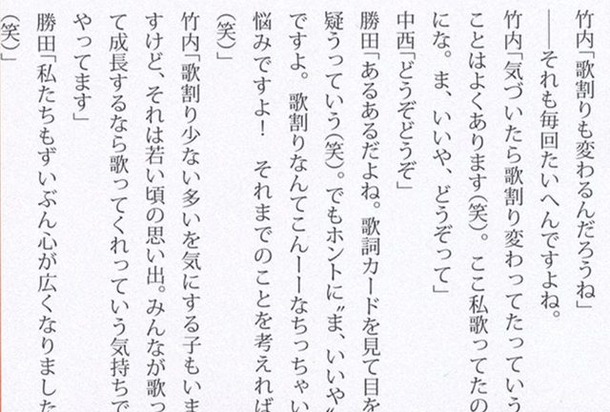 竹内「歌割りも変わるんだろうね」
――それも毎回たいへんですよね。
竹内「気づいたら歌割り変わってたっていう
ことはよくあります(笑)。ここ私歌ってたの
にな。ま、いいや、どうぞって」
中西「どうぞどうぞ」
勝田「あるあるだよね。歌詞カードを見て目を
疑うっていう(笑)。でもホントに“ま、いいや”
ですよ。歌割りなんてこんーーなちっちゃい
悩みですよ！　それまでのことを考えれば
(笑)」
竹内「歌割り少ない多いを気にする子もいま
すけど、それは若い頃の思い出。みんなが歌っ
て成長するなら歌ってくれっていう気持ちで
やってます」
勝田「私たちもずいぶん心が広くなりました
(笑)」